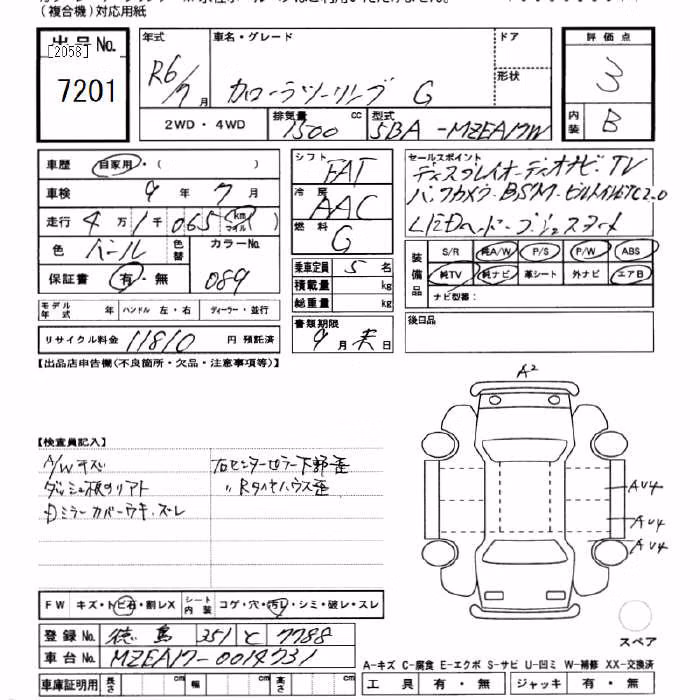 (複合機)対応用紙
出品 No.
[2058]
7201
年式
R6/7月
車名・グレード
カローラツーリング G
ドア
形状
2WD・4WD
排気量
1500 cc
型式
5BA-MZEA17W
評価点
3
内装
B
車歴 自家用・( )
車検 9年 7月
走行 4万 1千 065 km マイル ( )
色 パール
色替
カラーNo.
089
保証書 有・無
モデル年式 年 ハンドル 左・右 ディーラー・並行
リサイクル料金 11810 円 預託済
シフト
FAT
冷房
AAC
燃料
G
乗車定員 5名
積載量 kg
総重量 kg
書類期限
9月末日
セールスポイント
ディスプレイオーディオナビ・TV
バックカメラ・BSM・ビルトインETC2.0
LEDヘッド・プッシュスタート
装備品
S/R 純A/W P/S P/W ABS
純TV 純ナビ 革シート 外ナビ エアB
ナビ型番:
後日品
【出品店申告欄(不良箇所・欠品・注意事項等)】
【検査員記入】
A/Wキズ
右センターピラー下部歪
〃Rタイヤハウス歪
ミラーカバーウキ、ズレ
A2
AU4
AU4
AU4
FW キズ・トビ石・割レX
シート内装 コゲ・穴・汚レ・シミ・破レ・スレ
登録 No. 徳島 351 と 7788
車台 No. MZEA17-0014731
車庫証明用 長さ cm 幅 cm 高さ cm
スペア
A-キズ C-腐食 E-エクボ S-サビ U-凹ミ W-補修 XX-交換済
工具 有・無 ジャッキ 有・無